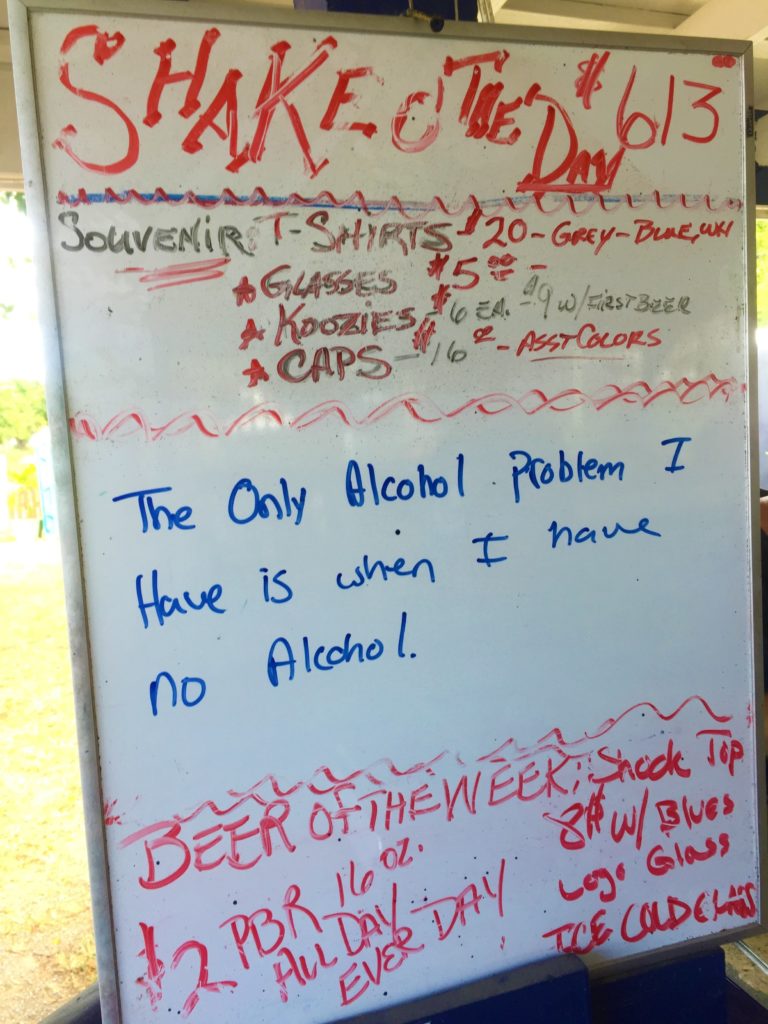 SHAKE OF THE DAY $613
SOUVENIR T-SHIRTS $20 - GREY - BLUE, WH
* GLASSES $5.00 -
* KOOZIES - $6 EA. - $9 W/ FIRST BEER
* CAPS - $16 - ASST COLORS
The Only Alcohol Problem I
Have is when I have
no Alcohol.
BEER OF THE WEEK: Shock Top
8$ W/ Blues
Logo Glass
ICE COLD
$2 PBR 16 oz.
ALL DAY
EVER DAY